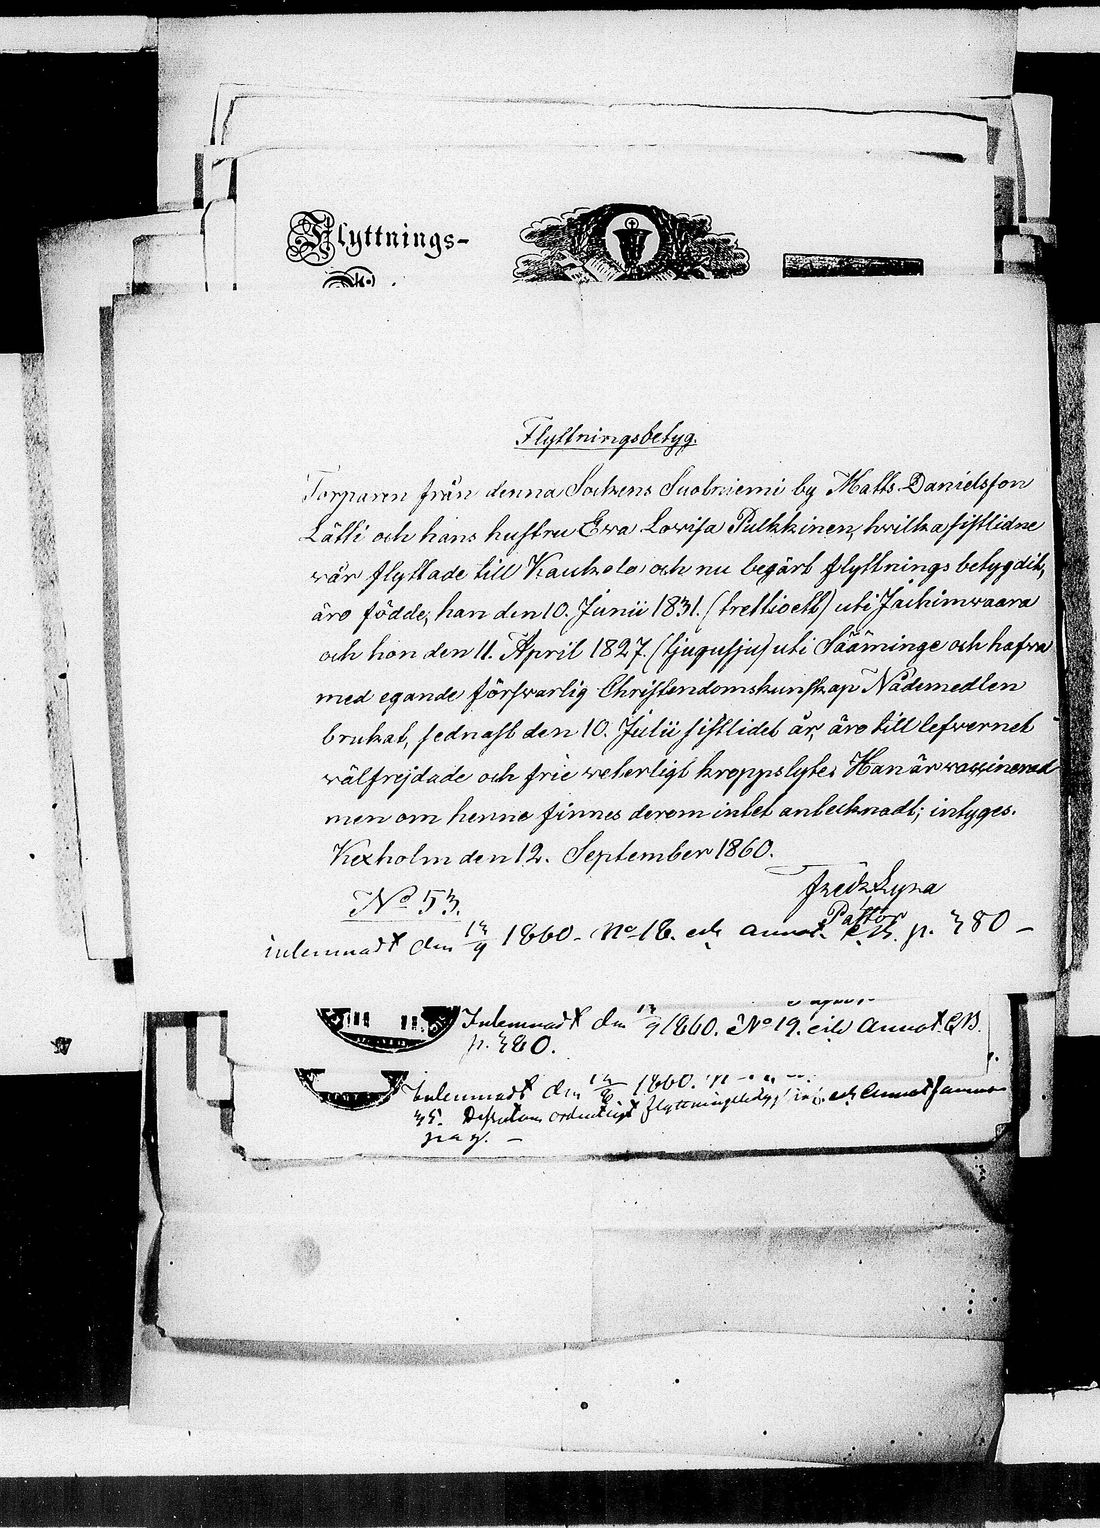 Flyttnings-
Flyttningsbetyg.
Torparen från denna Sockens Suolniemi by Matts Danielsson
Lätti och hans hustru Ewa Lowisa Pulkkinen, hwilka sistlidne
wår flyttade till Kaukola och nu begärt flyttnings betyg dit,
äro födde, han den 10. Junii 1831. (trettioett) uti Jaakimwaara
och hon den 11. April 1827. (tjugusju) uti Sääminge och hafwa
med egande förswarlig Christendomskunskap Nådemedlen
brukat, sednast den 10. Julii sistlidet år, äro till lefwernet
wälfrejdade och frie weterligt kroppslyte. Han är waccinerad
men om henne finnes derom intet antecknadt; intyges.
Kexholm den 12. September 1860.
Fredr Lyra
Pastor
No 53.
inlemnadt den 13/9 1860. No 18. och annot. p. 380 -
Inlemnadt den 13/9 1860. No 19. och Annot. K.B.
p. 380.
Inlemnadt den 1860.
35. ordentligt och Annot
pag. -